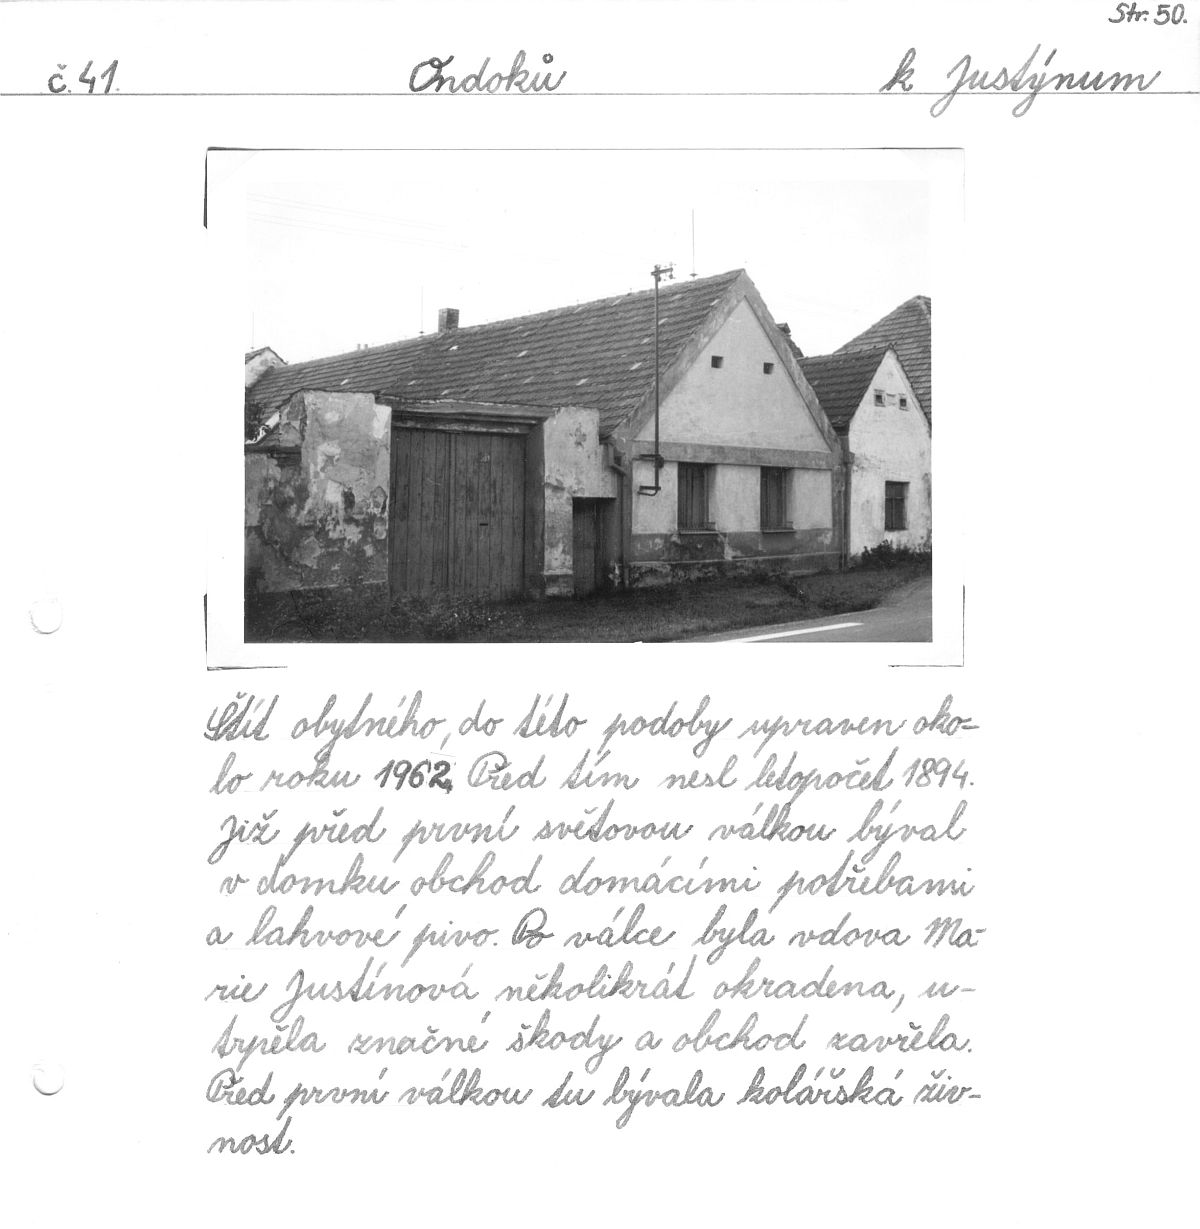 Str. 50.
č. 41. Ondoků k Justýnum
Štít obytného, do této podoby upraven oko-
lo roku 1962. Před tím nesl letopočet 1894.
Již před první světovou válkou býval
v domku obchod domácími potřebami
a lahvové pivo. Po válce byla vdova Ma-
rie Justínová několikrát okradena, u-
trpěla značné škody a obchod zavřela.
Před první válkou tu bývala kolářská živ-
nost.